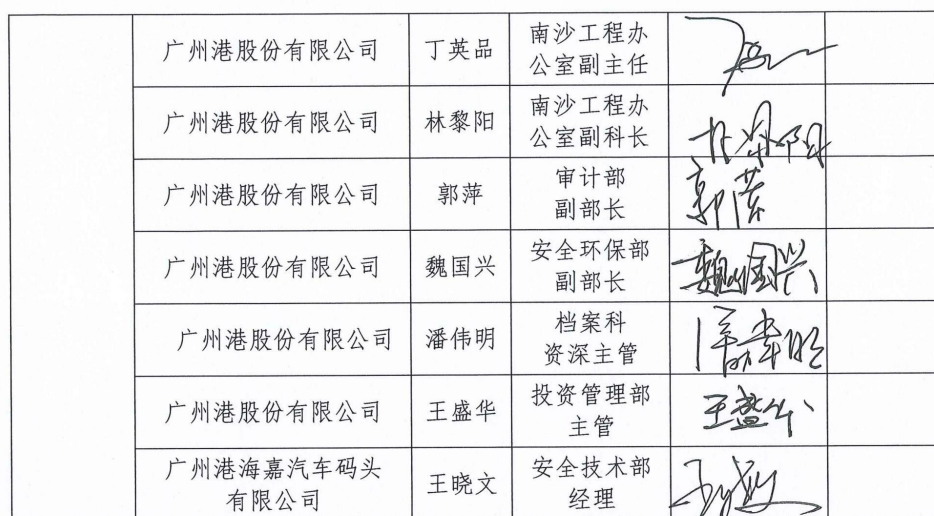 广州港股份有限公司 丁英品 南沙工程办
公室副主任
广州港股份有限公司 林黎阳 南沙工程办
公室副科长 林黎阳
广州港股份有限公司 郭萍 审计部
副部长 郭萍
广州港股份有限公司 魏国兴 安全环保部
副部长 魏国兴
广州港股份有限公司 潘伟明 档案科
资深主管 潘伟明
广州港股份有限公司 王盛华 投资管理部
主管 王盛华
广州港海嘉汽车码头
有限公司 王晓文 安全技术部
经理